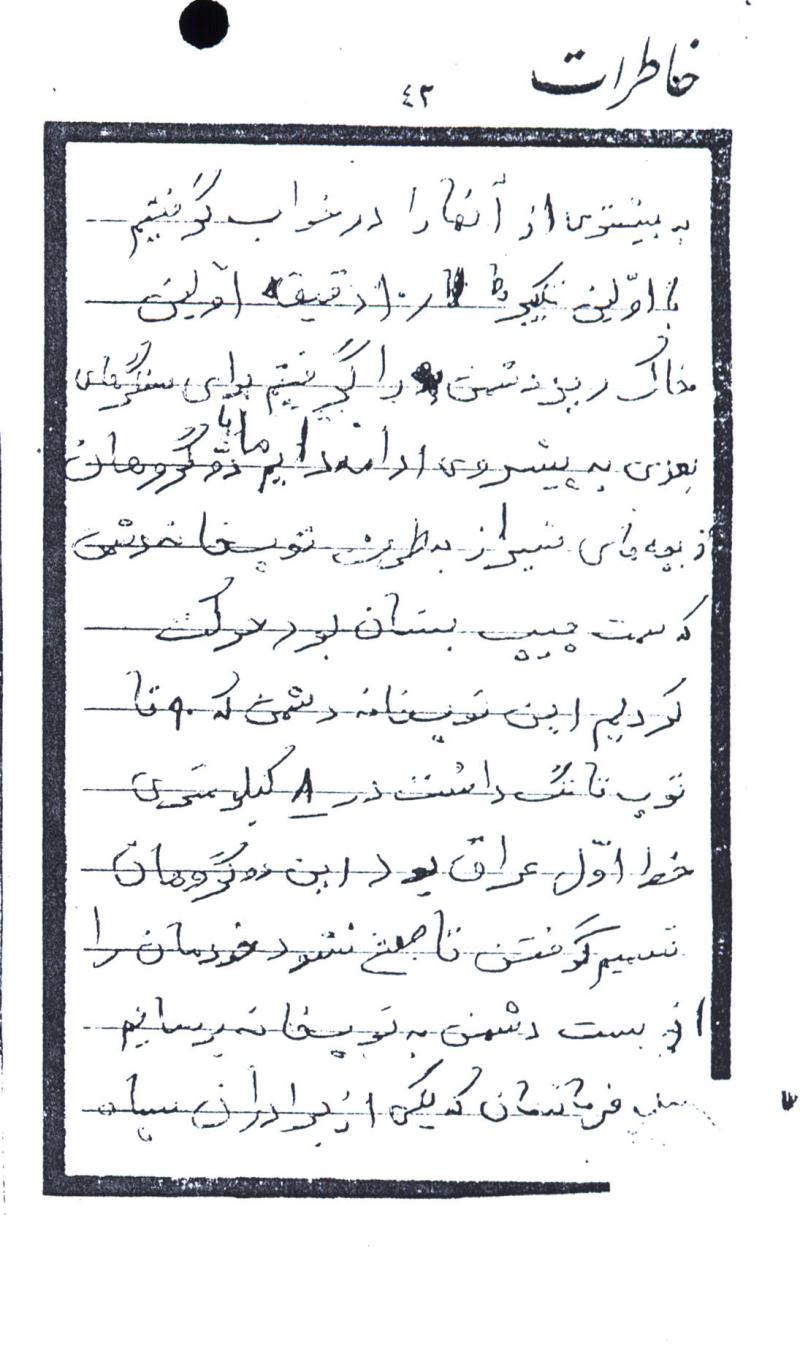 خاطرات
۴۲
به بیشتری از آنها را در خواب گرفتیم
با اوّلین تکبیر ها در ۱۰ دقیقه اوّلین
خاک ریز دشمن را گرفتیم برای سنگرهای
بعدی به پیشروی ادامه دادیم ما با دو گروهان
از بچه های شیراز به طرف توپخانه دشمن
که سمت چپ بستان بود حرکت
کردیم این توپخانه دشمن که ۹۰ تا
توپ تانگ داشت در ۸ کیلو متری
خط اوّل عراق بود این دو گروهان
تسمیم گرفتن تا صبح نشود خودمان را
از بست دشمن به توپخانه برسانیم
فرماندمان که یکی از برادران سپاه